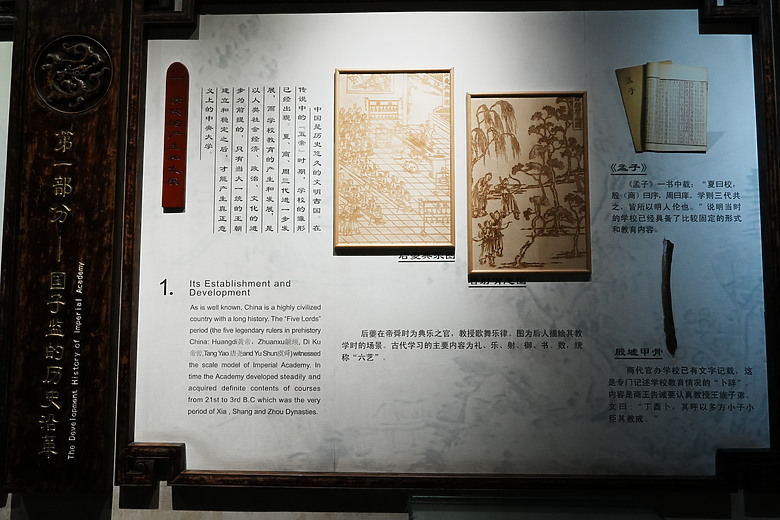 第一部分——国子监的历史沿革
The Development History of Imperial Academy
中国是历史悠久的文明古国。在
传说中的“五帝”时期,学校的雏形
已经出现。夏、商、周三代进一步发
展,而学校教育的产生和发展,是
以人类社会经济、政治、文化的进
步为前提的,只有当大一统的王朝
建立和稳定之后,才能产生真正意
义上的中央大学
1.
Its Establishment and
Development
As is well known, China is a highly civilized
country with a long history. The "Five Lords"
period (the five legendary rulers in prehistory
China: Huangdi黃帝, Zhuanxu顓頊, Di Ku
帝嚳,Tang Yao 唐堯and Yu Shun虞舜) witnessed
the scale model of Imperial Academy. In
time the Academy developed steadily and
acquired definite contents of courses
from 21st to 3rd B.C which was the very
period of Xia , Shang and Zhou Dynasties.
后夔典乐图
后夔在帝舜时为典乐之官,教授歌舞乐律。图为后人描绘其教
学时的场景。古代学习的主要内容为礼、乐、射、御、书、数,统
称“六艺”。
孟子
《孟子》
《孟子》一书中载:“夏曰校,
殷(商)曰序,周曰庠。学则三代共
之,皆所以明人伦也。”说明当时
的学校已经具备了比较固定的形式
和教育内容。
殷墟甲骨
商代官办学校已有文字记载,这
是专门记述学校教育情况的“卜辞”,
内容是商王告诫要认真教授王族子弟。
文曰:“丁酉卜,其呼以多方小子小
臣其教戒。”